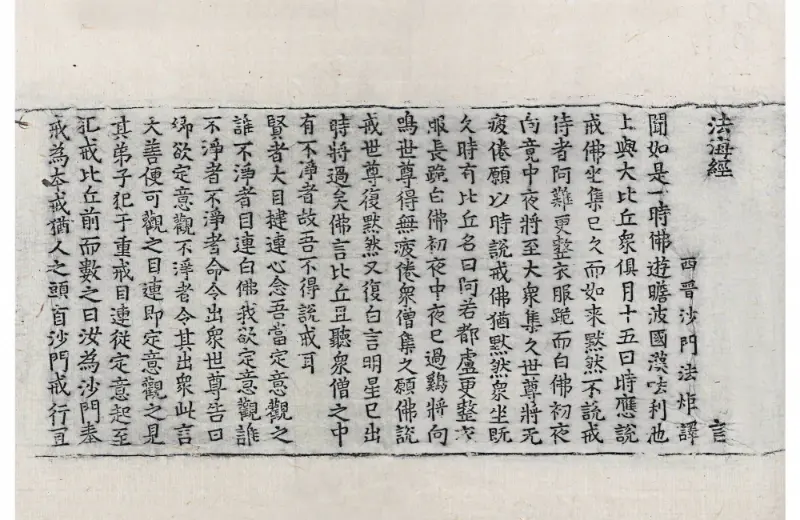 法海經 言
西晉沙門法炬譯
聞如是一時佛遊瞻波國漢呿利池
上與大比丘衆俱月十五日時應說
戒佛坐集已久而如來黙然不說戒
侍者阿難更整衣服跪而白佛初夜
向竟中夜將至大衆集久世尊將无
疲倦願以時說戒佛猶黙然衆坐旣
久時有比丘名曰阿若都盧更整衣
服長跪白佛初夜中夜已過鷄將向
鳴世尊得無疲倦衆僧集久願佛說
戒世尊復黙然又復白言明星已出
時將過矣佛言比丘且聽衆僧之中
有不淨者故吾不得說戒耳
賢者大目揵連心念吾當定意觀之
誰不淨者目連白佛我欲定意觀誰
不淨者不淨者命令出衆世尊告曰
卿欲定意觀不淨者令其出衆此言
大善便可觀之目連即定意觀之是
其弟子犯于重戒目連從定意起至
犯戒比丘前而數之曰汝爲沙門奉
戒爲本戒猶人之頭首沙門戒行宜